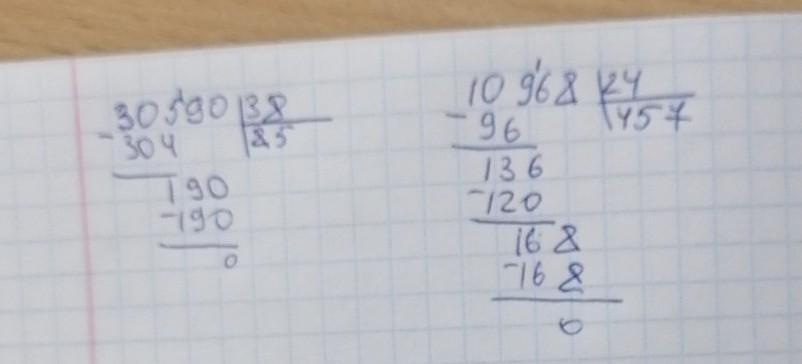 30590 38
-304 85
190
-190
0
10968 24
-96 457
136
-120
168
-168
0